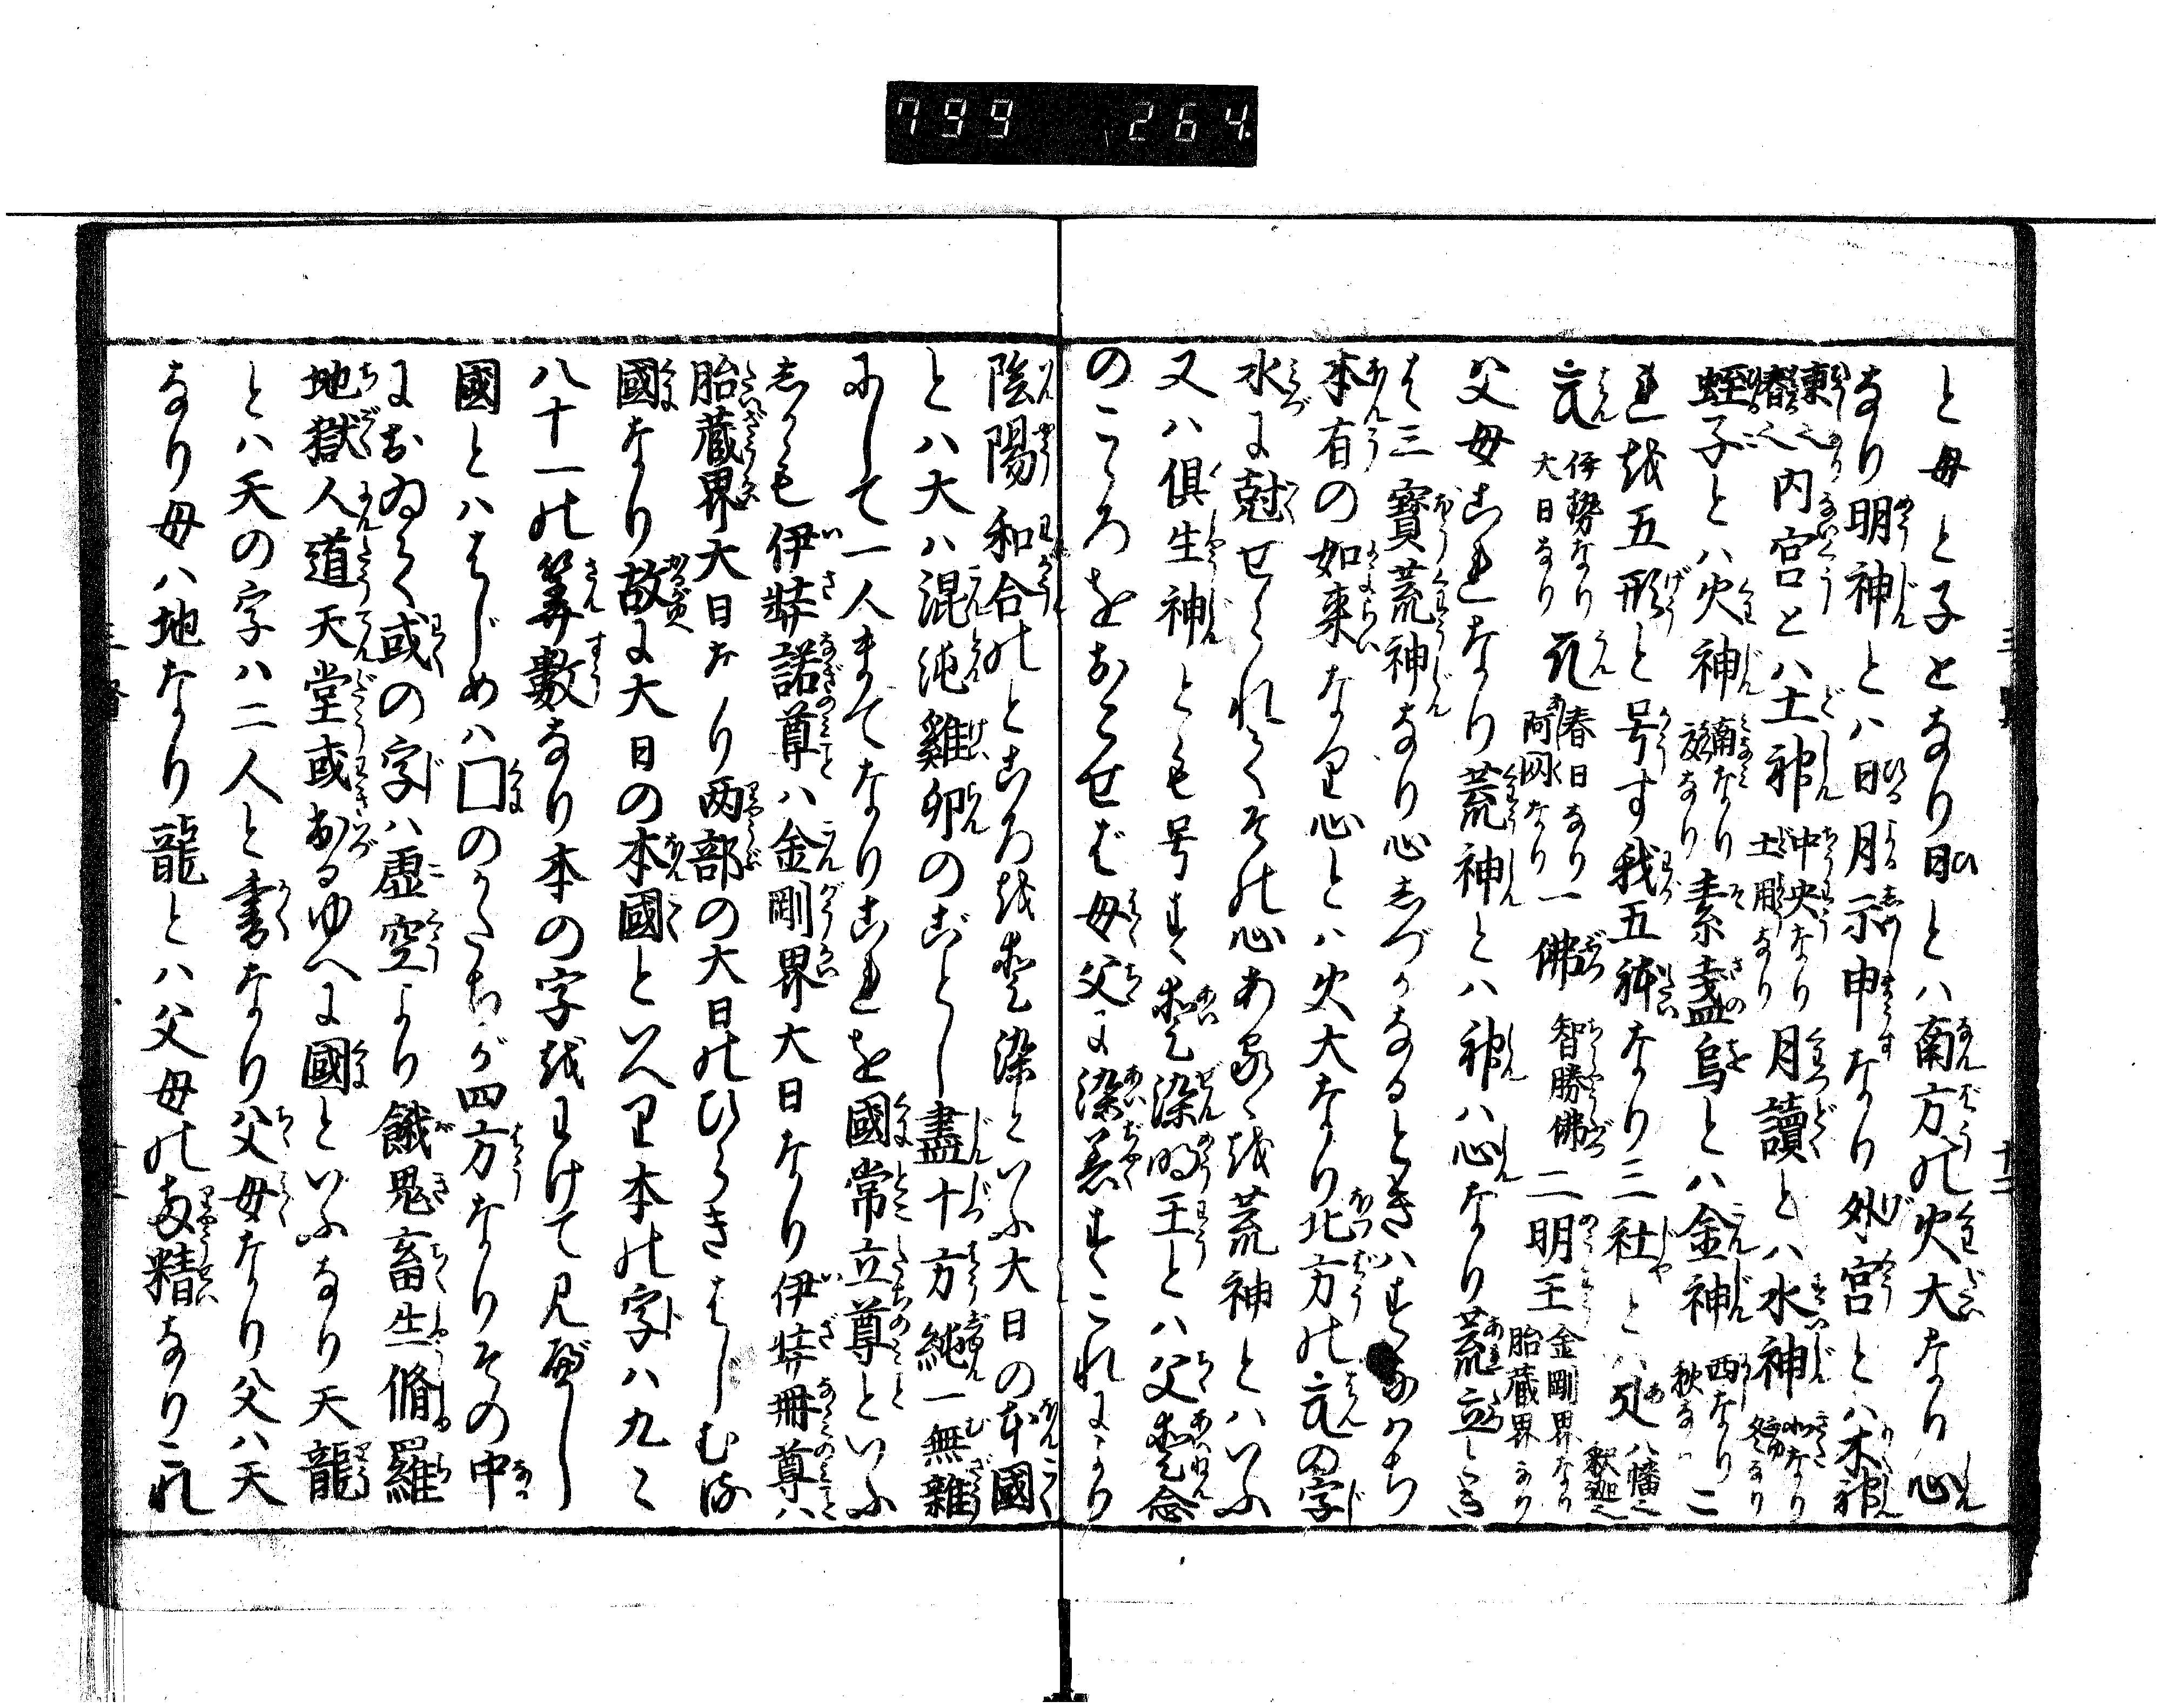 799 264
と母と子となり日とハ南方の火大なり心
なり明神とハ日月示申なり外宮とハ木神
東也春也内宮とハ土神中央なり土用なり月讀とハ水神北なり冬なり
蛭子とハ火神南なり夏なり素盞烏とハ金神西なり秋なりこ
れを五形と号す我五体なり三社とハ八幡也釈迦也
伊勢なり大日なり春日なり阿閦なり一佛智勝佛二明王金剛界なり胎蔵界なり
父母これなり荒神とハ神ハ心なり荒立とき
ハ三寳荒神なり心しづかなるときハすなハち
本有の如来なり心とハ火大なり北方のの字
水に尅せられてその心あるゝを荒神とハいふ
又ハ倶生神とも号す愛染明王とハ父愛念
のこゝろをおこせば母父に染着すこれにより
陰陽和合のところを愛染といふ大日の本國
とハ大ハ混沌雞卵のごとし盡十方純一無雜
にして一人まてなりこれを國常立尊といふ
しかも伊弉諾尊ハ金剛界大日なり伊弉冊尊ハ
胎蔵界大日なり两部の大日のひらきはじむる
國なり故に大日の本國といへり本の字ハ九々
八十一の筭數なり本の字をわけて見べし
國とハはじめハ囗のかたちが四方なりその中
におゐて或の字ハ虚空より餓鬼畜生脩羅
地獄人道天堂或出るゆへに國といふなり天龍
とハ天の字ハ二人と書なり父母なり父ハ天
なり母ハ地なり龍とハ父母の两精なりこれ